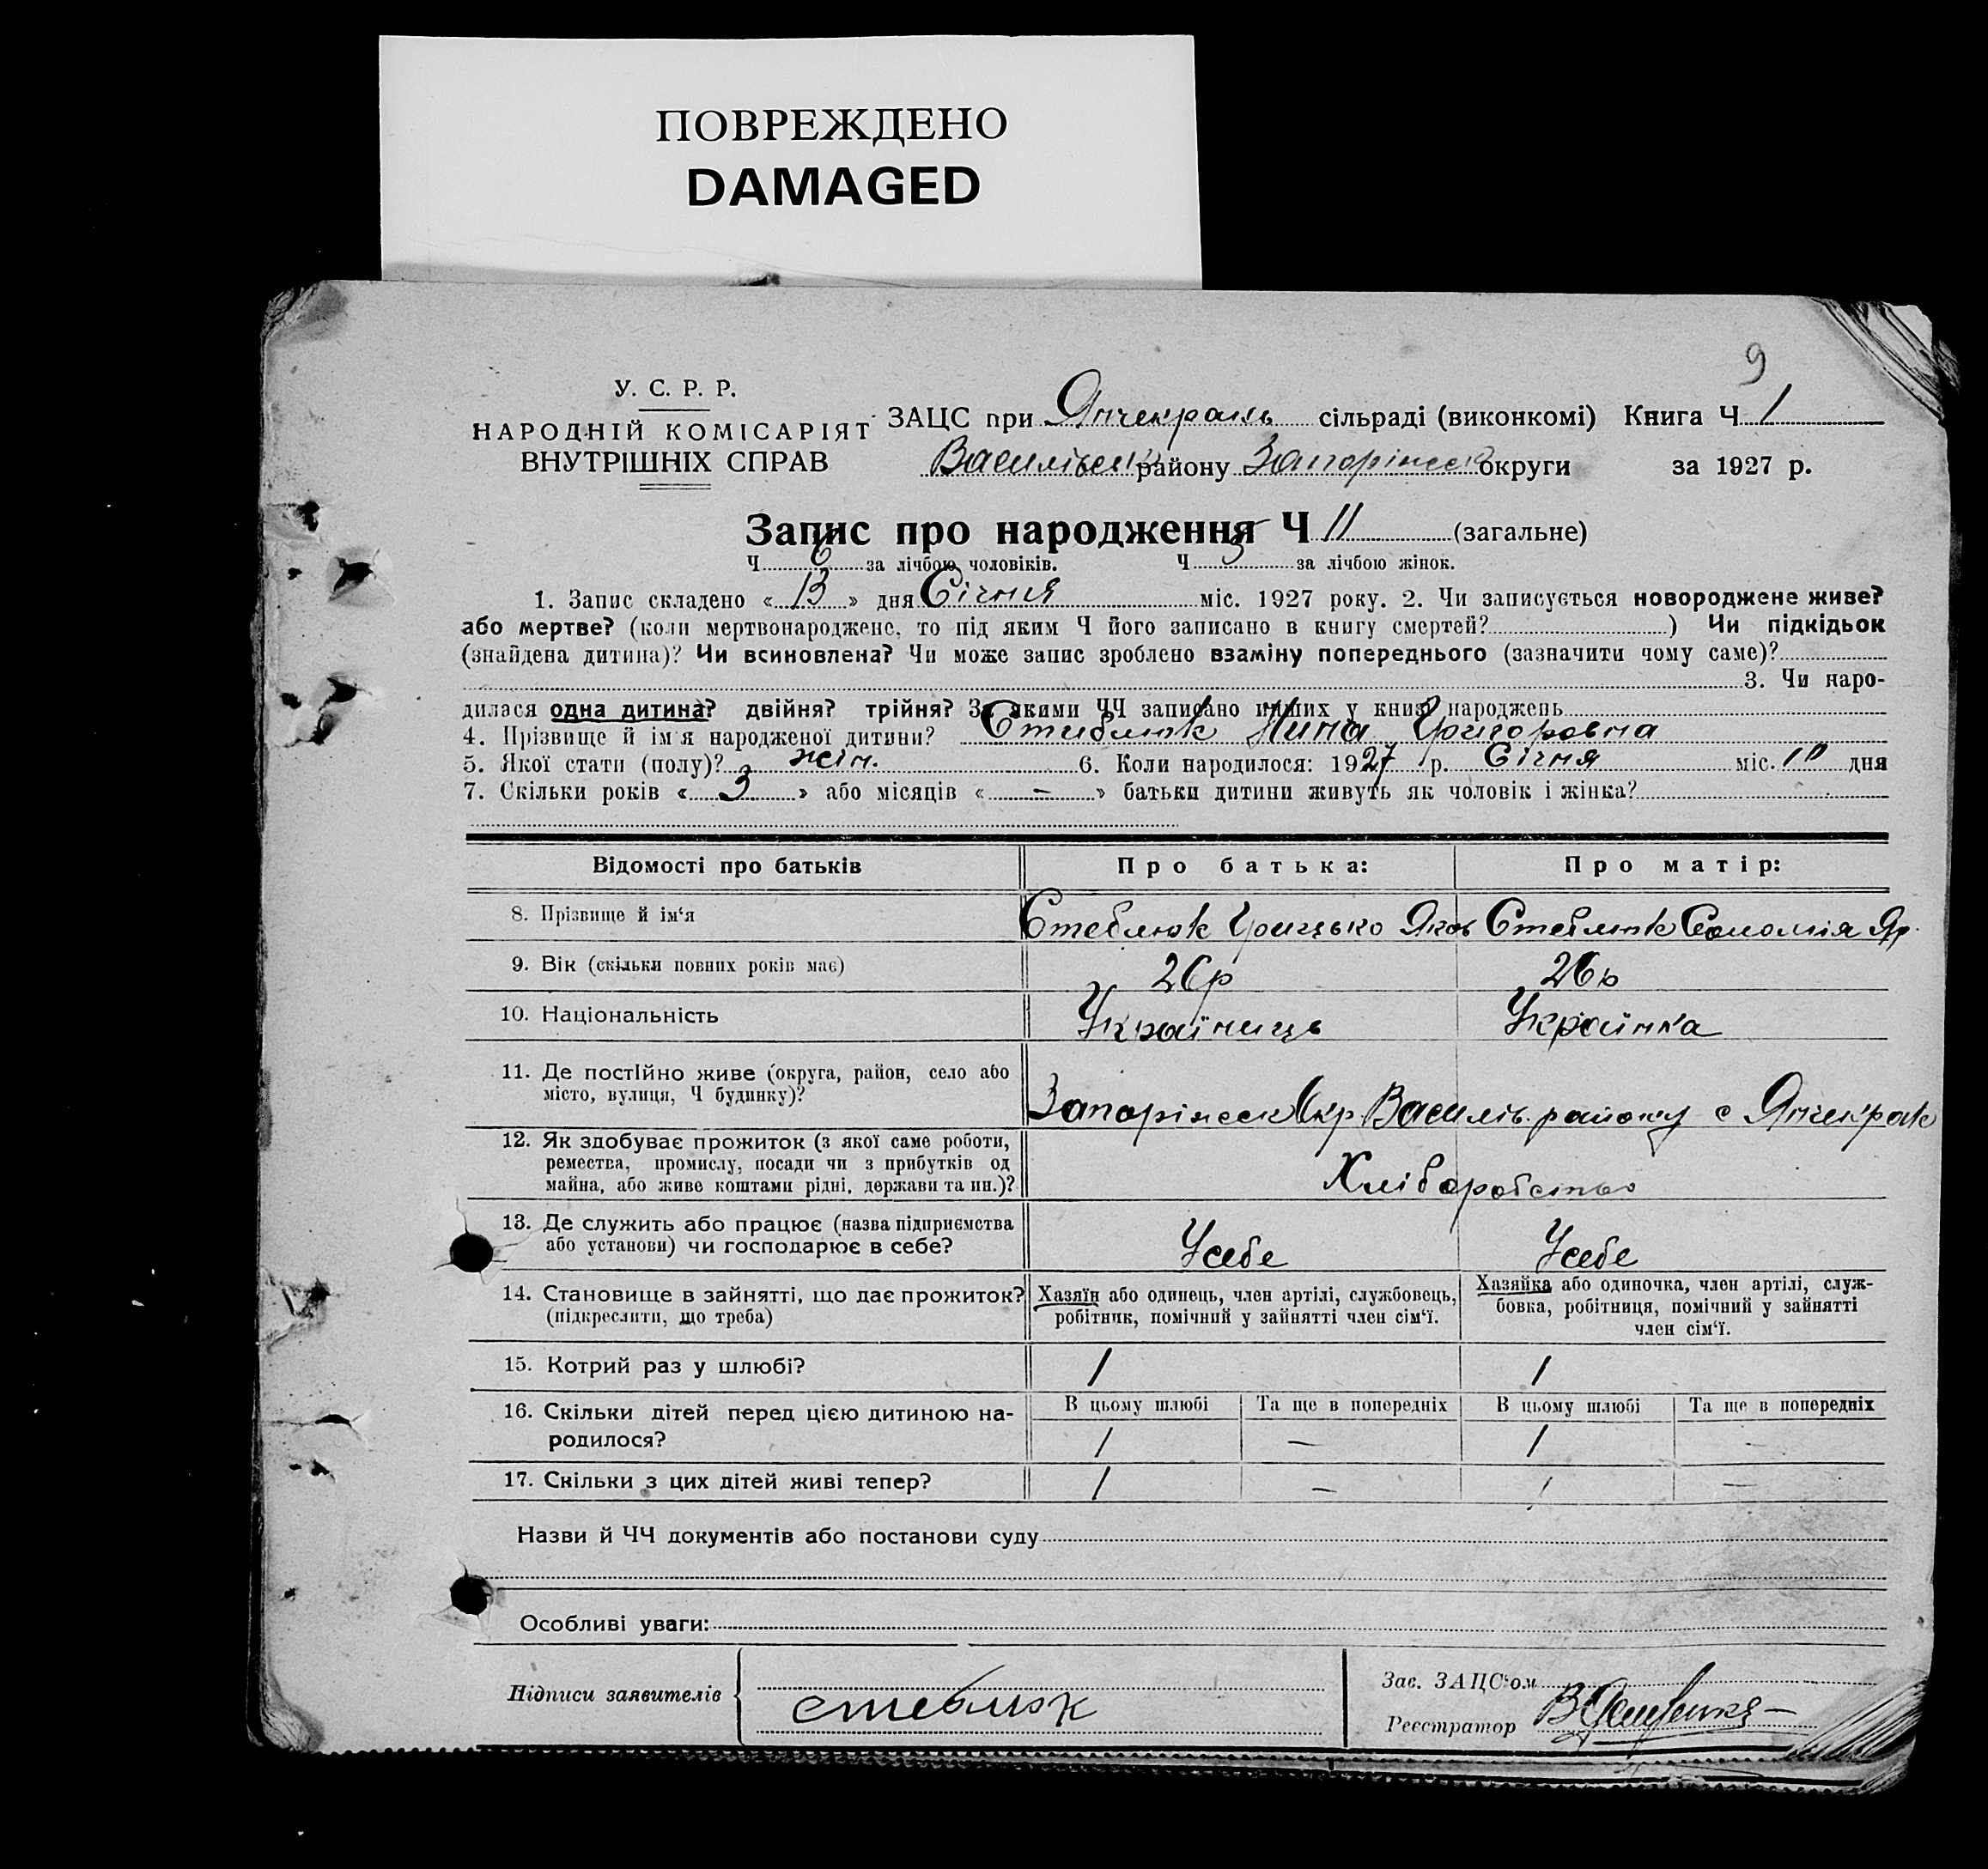 ПОВРЕЖДЕНО
DAMAGED
9
У. С. Р. Р.
НАРОДНІЙ КОМІСАРІЯТ
ВНУТРІШНІХ СПРАВ
ЗАЦС при Янчекракь сільраді (виконкомі) Книга Ч. 1
Васильевск району Запоріжск округи за 1927 р.
Запис про народження Ч 11 (загальне)
Ч. 6 за лічбою чоловіків. Ч. 5 за лічбою жінок.
1. Запис складено « 13 » дня Січня міс. 1927 року. 2. Чи записується новороджене живе?
або мертве? (коли мертвонароджене, то під яким Ч його записано в книгу смертей? ) Чи підкідьок
(знайдена дитина)? Чи всиновлена? Чи може запис зроблено взаміну попереднього (зазначити чому саме)?
3. Чи наро-
дилася одна дитина? двійня? трійня? За якими ЧЧ записано инших у книзі народжень
4. Прізвище й ім'я народженої дитини? Стеблюк Нина Григоровна
5. Якої стати (полу)? жін. 6. Коли народилося: 1927 р. Січня міс. 10 дня
7. Скільки років « 3 » або місяців « - » батьки дитини живуть як чоловік і жінка?
Відомості про батьків Про батька: Про матір:
8. Прізвище й ім'я Стеблюк Грицько Яков Стеблюк Соломія
9. Вік (скільки повних років має) 26р 26р
10. Національність Українець Українка
11. Де постійно живе (округа, район, село або
місто, вулиця, Ч будинку)? Запоріжск Окр. Василів. району с Янчекрак
12. Як здобуває прожиток (з якої саме роботи,
ремества, промислу, посади чи з прибутків од
майна, або живе коштами рідні, держави та ин.)? Хліборобство
13. Де служить або працює (назва підприємства
або установи) чи господарює в себе? Усебе Усебе
14. Становище в зайнятті, що дає прожиток?
(підкреслити, що треба)
Хазяїн або одинець, член артілі, службовець,
робітник, помічний у зайнятті член сім'ї.
Хазяйка або одиночка, член артілі, служ-
бовка, робітниця, помічний у зайнятті
член сім'ї.
15. Котрий раз у шлюбі? 1 1
16. Скільки дітей перед цією дитиною на-
родилося?
В цьому шлюбі Та ще в попередніх В цьому шлюбі Та ще в попередніх
1 - 1 -
17. Скільки з цих дітей живі тепер? 1 - 1 -
Назви й ЧЧ документів або постанови суду
Особливі уваги:
Підписи заявителів стеблюк
Зас. ЗАЦС'ом
Реєстратор